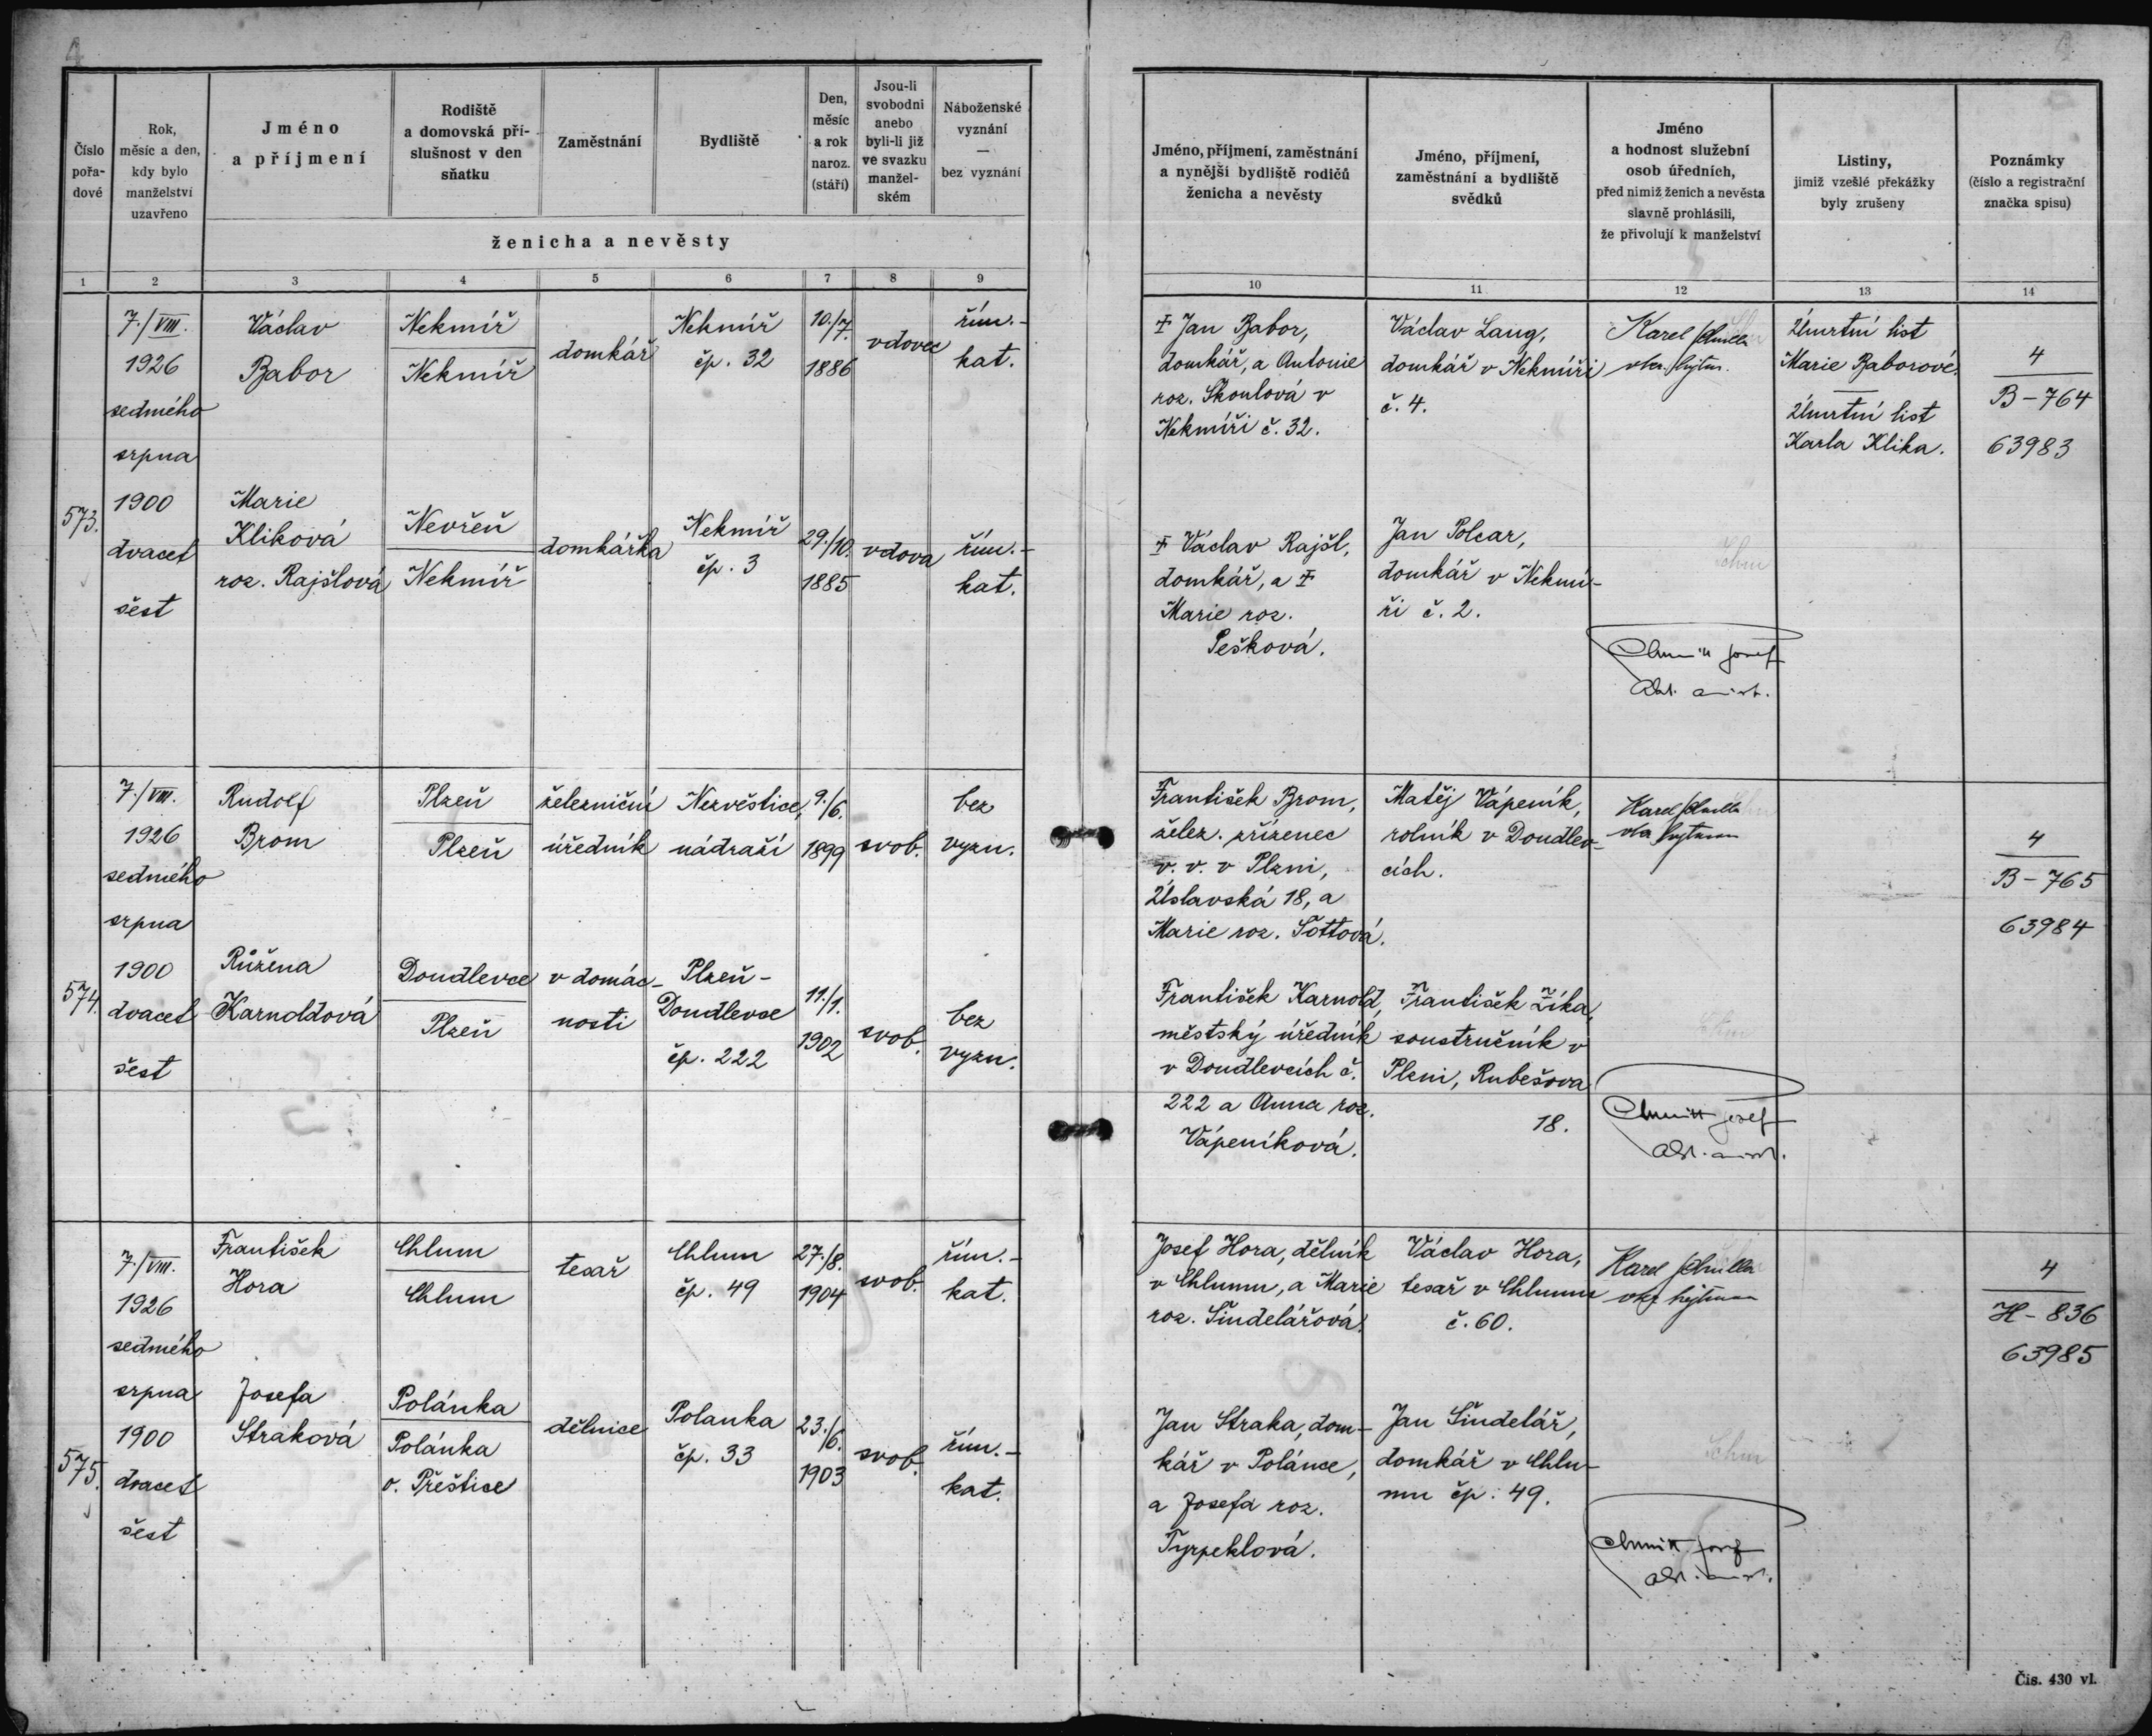 Číslo
pořa-
dové
Rok,
měsíc a den,
kdy bylo
manželství
uzavřeno
Jméno
a příjmení
Rodiště
a domovská pří-
slušnost v den
sňatku
Zaměstnání
Bydliště
Den,
měsíc
a rok
naroz.
(stáří)
Jsou-li
svobodni
anebo
byli-li již
ve svazku
manžel-
ském
Náboženské
vyznání
—
bez vyznání
ženicha a nevěsty
1
2
3
4
5
6
7
8
9
Jméno, příjmení, zaměstnání
a nynější bydliště rodičů
ženicha a nevěsty
Jméno, příjmení,
zaměstnání a bydliště
svědků
Jméno
a hodnost služební
osob úředních,
před nimiž ženich a nevěsta
slavně prohlásili,
že přivolují k manželství
Listiny,
jimiž vzešlé překážky
byly zrušeny
Poznámky
(číslo a registrační
značka spisu)
10
11
12
13
14
573.
7./VIII.
1926
sedmého
srpna
1900
dvacet
šest
Václav
Babor
Nekmíř
Nekmíř
domkář
Nekmíř
čp. 32
10./7.
1886
vdovec
řím.-
kat.
Marie
Kliková
roz. Rajšlová
Nevřeň
Nekmíř
domkářka
Nekmíř
čp. 3
29./10.
1885
vdova
řím.-
kat.
‡ Jan Babor,
domkář, a Antonie
roz. Skoulová v
Nekmíři č. 32.
‡ Václav Rajšl,
domkář, a ‡
Marie roz.
Pešková.
Václav Lang,
domkář v Nekmíři
č. 4.
Jan Polcar,
domkář v Nekmí-
ři č. 2.
Karel
Josef
Úmrtní list
Marie Baborové.
Úmrtní list
Karla Klika.
4
B-764
63983
574.
7./VIII.
1926
sedmého
srpna
1900
dvacet
šest
Rudolf
Brom
Plzeň
Plzeň
železniční
úředník
Nezvěstice,
nádraží
9./6.
1899
svob.
bez
vyzn.
Růžena
Karnoldová
Doudlevce
Plzeň
v domác-
nosti
Plzeň-
Doudlevce
čp. 222
11./1.
1902
svob.
bez
vyzn.
František Brom,
želez. zřízenec
v. v. v Plzni,
Úslavská 18, a
Marie roz. Tottová.
František Karnold,
městský úředník
v Doudlevcích č.
222 a Anna roz.
Vápeníková.
Matěj Vápeník,
rolník v Doudlev-
cích.
František Zíka,
soustružník v
Plzni, Rubešova
18.
Karel
Josef
4
B-765
63984
575.
7./VIII.
1926
sedmého
srpna
1900
dvacet
šest
František
Hora
Chlum
Chlum
tesař
Chlum
čp. 49
27./8.
1904
svob.
řím.-
kat.
Josefa
Straková
Polánka
Polánka
o. Přeštice
dělnice
Polanka
čp. 33
23./6.
1903
svob.
řím.-
kat.
Josef Hora, dělník
v Chlumu, a Marie
roz. Šindelářová.
Jan Straka, dom-
kář v Polánce,
a Josefa roz.
Tyrpeklová.
Václav Hora,
tesař v Chlumu
č. 60.
Jan Šindelář,
domkář v Chlu-
mu čp. 49.
Karel
Josef
4
H-836
63985
Čís. 430 vl.